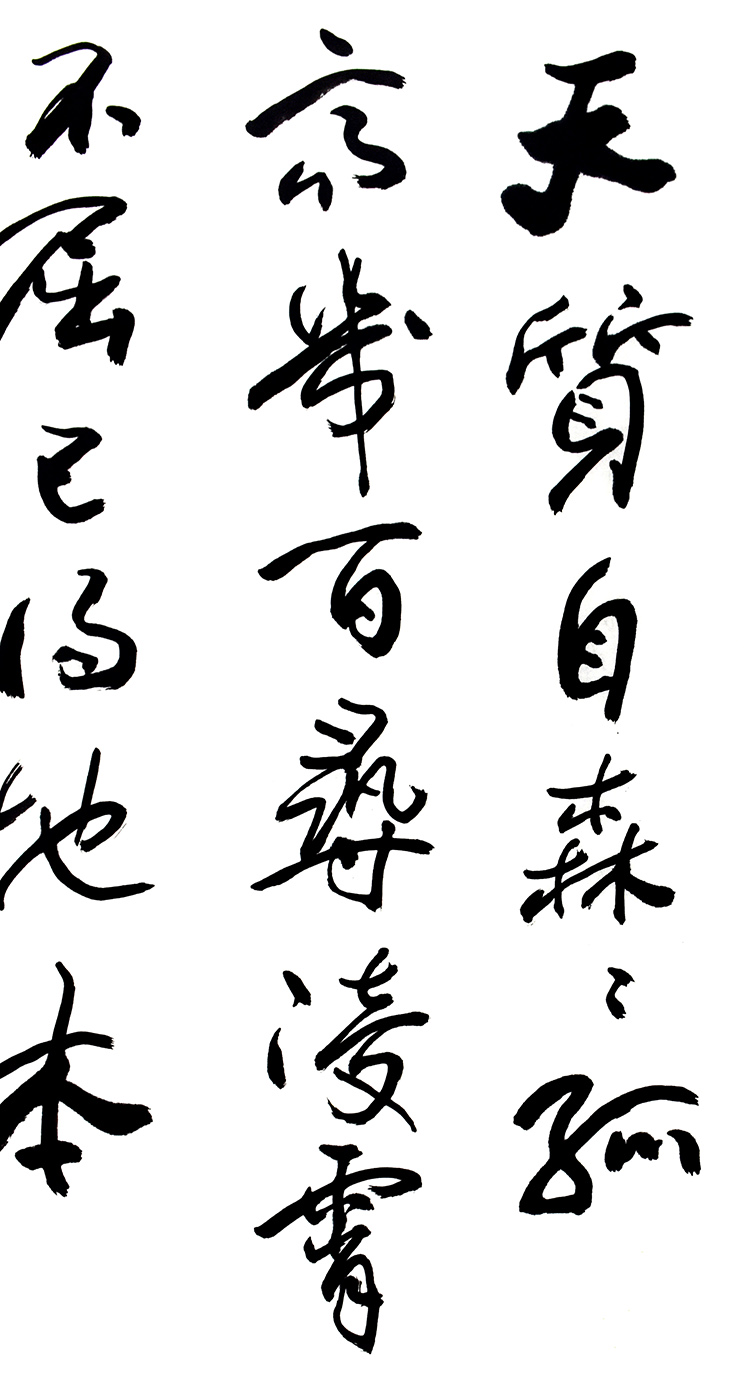 天質自森々孤
高幾百尋凌霄
不屈己得地本